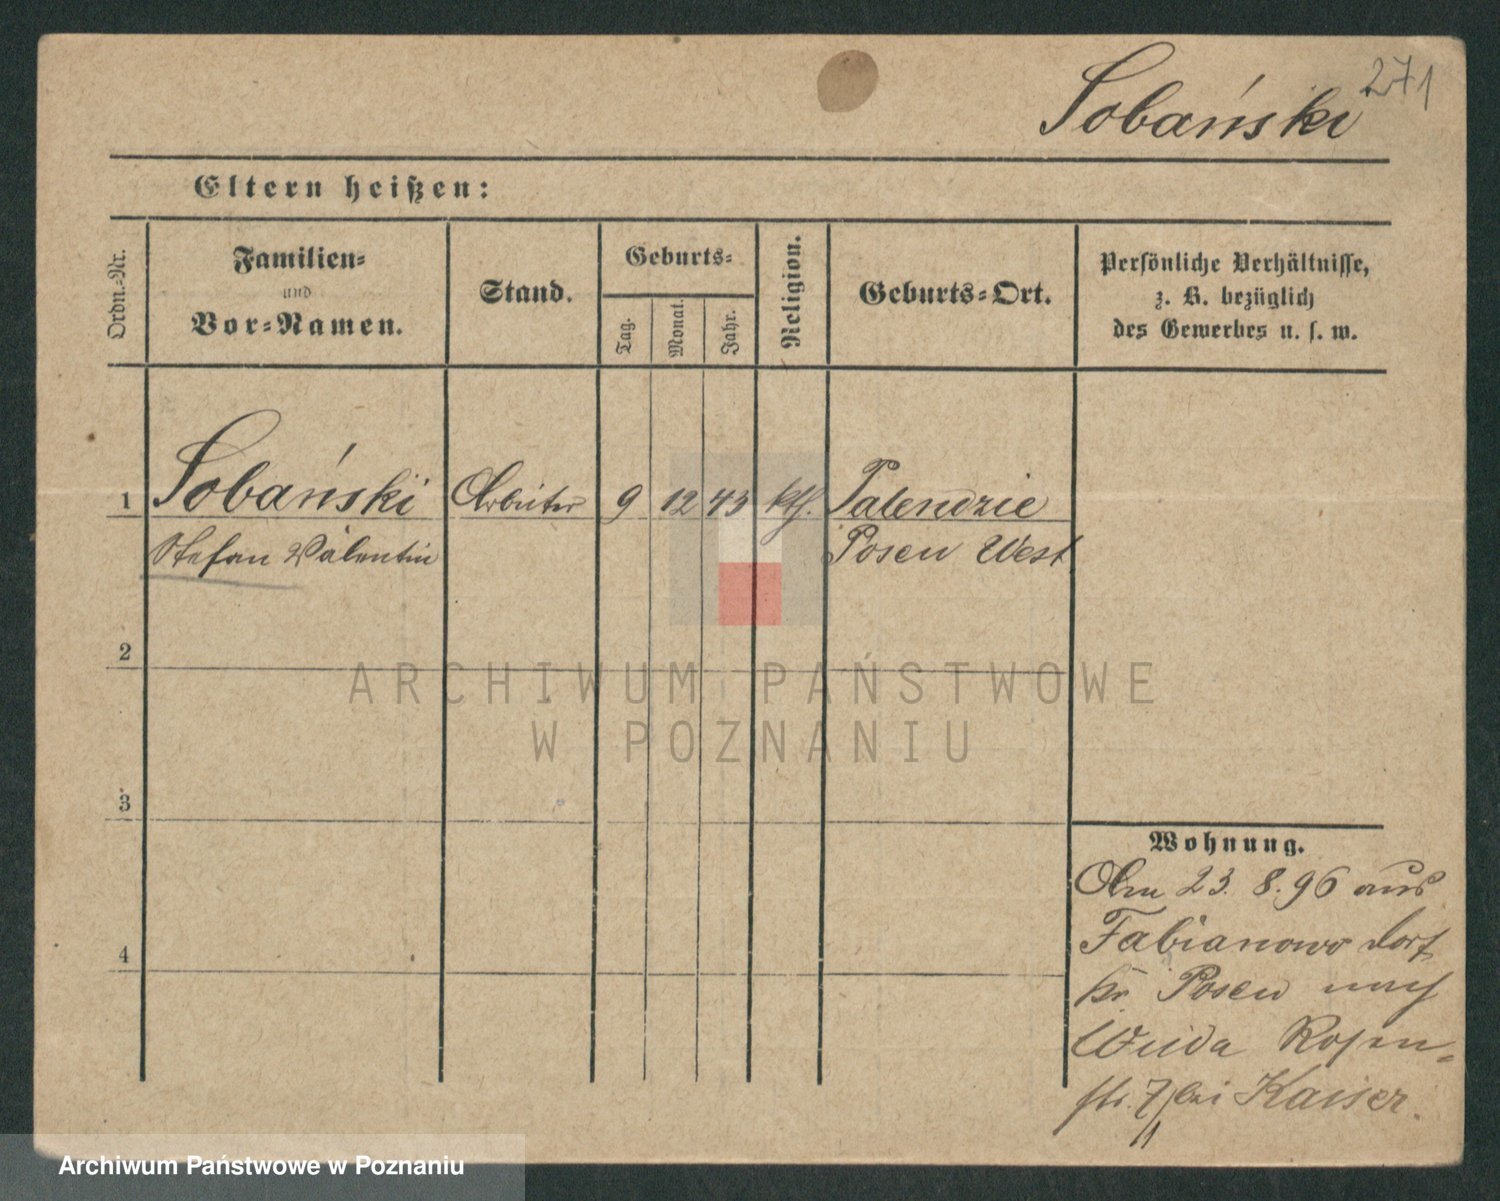 271
Sobański
Eltern heißen:
Ordn.-Nr.
Familien-
und
Vor-Namen.
Stand.
Geburts-
Tag.
Monat.
Jahr.
Religion.
Geburts-Ort.
Persönliche Verhältnisse,
z. B. bezüglich
des Gewerbes u. s. w.
1 Sobański Arbeiter 9 12 43 kth. Palendzie
Stefan Valentin Posen West
2
3
4
Wohnung.
Am 23. 8. 96 aus
Fabianowo Dorf
Kr Posen nach
Wilda Rosen-
str. 7 bei Kaiser.
ARCHIWUM PAŃSTWOWE
W POZNANIU
Archiwum Państwowe w Poznaniu